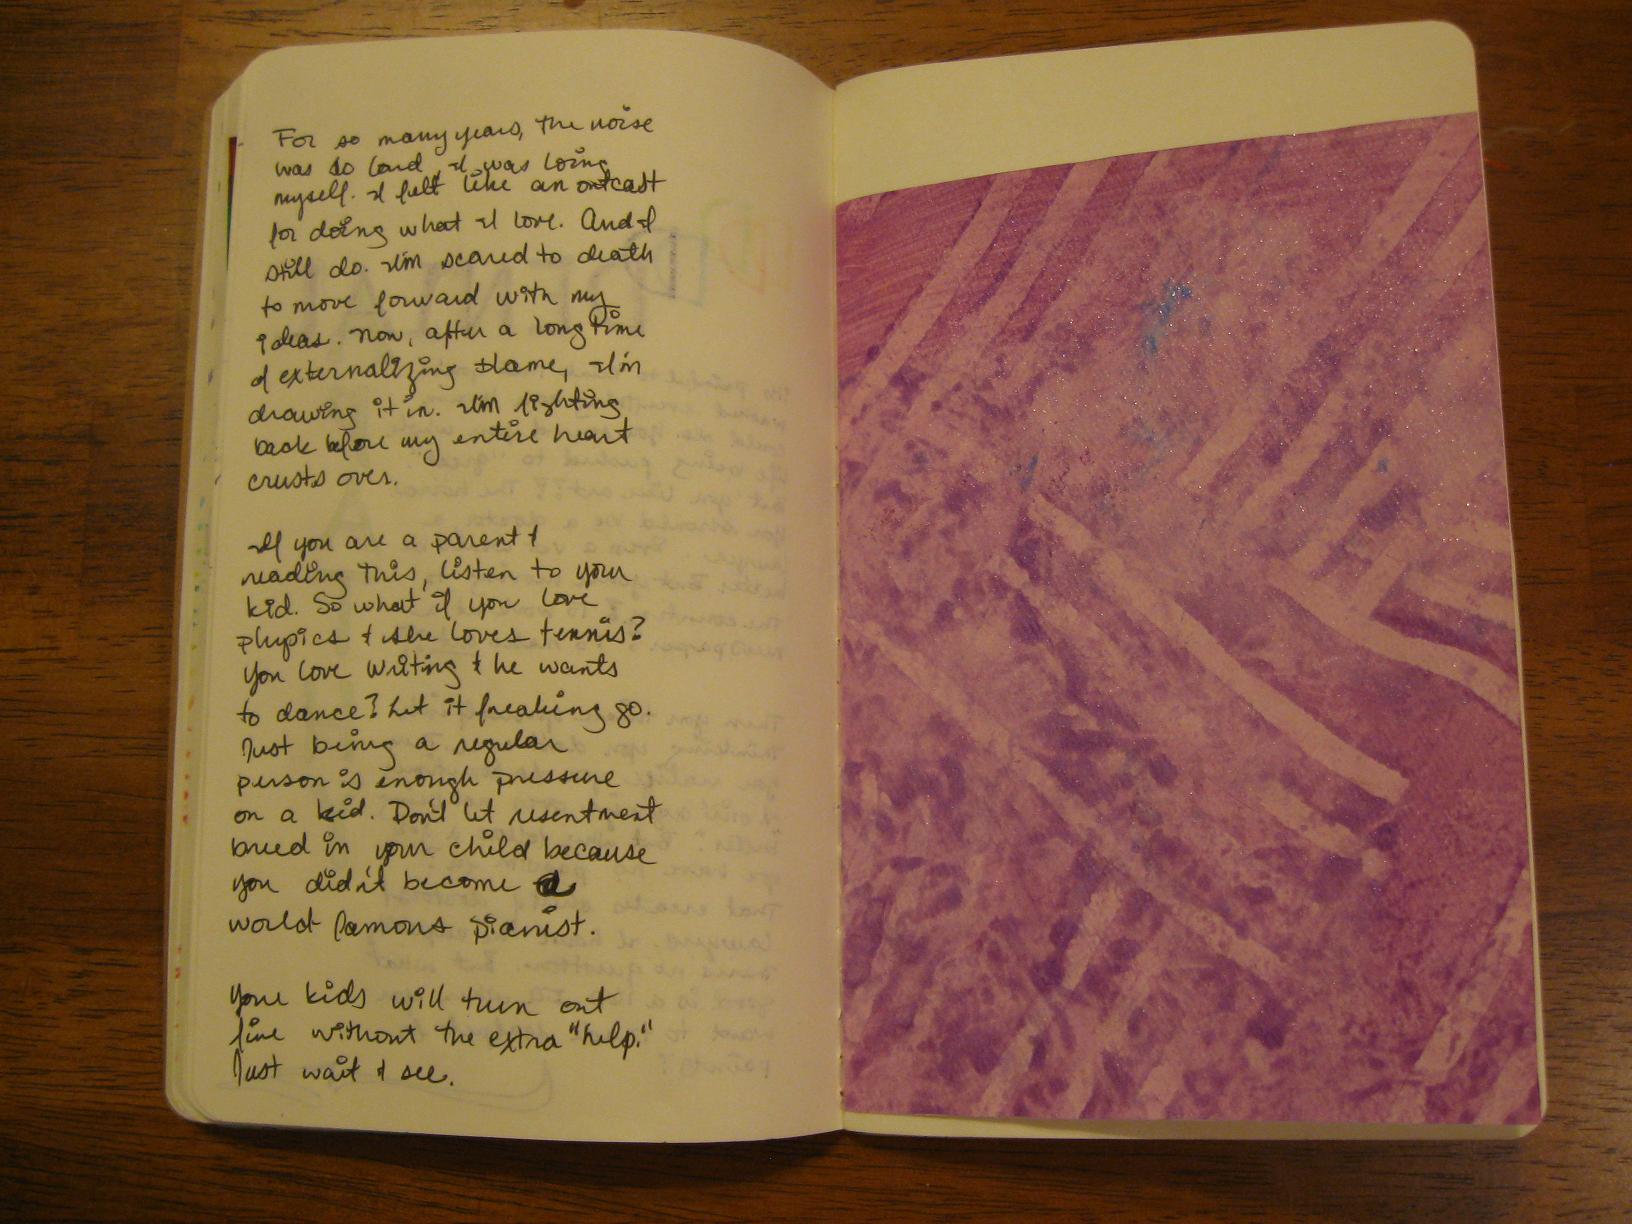 For so many years, the noise
was so loud, I was losing
myself. I felt like an outcast
for doing what I love. And I
still do. I'm scared to death
to move forward with my
ideas. Now, after a long time
of externalizing blame, I'm
drawing it in. I'm fighting
back before my entire heart
crusts over.
If you are a parent &
reading this, listen to your
kid. So what if you love
physics & she loves tennis?
You love writing & he wants
to dance? Let it freaking go.
Just being a regular
person is enough pressure
on a kid. Don't let resentment
breed in your child because
you didn't become a
world famous pianist.
Your kids will turn out
fine without the extra "help."
Just wait & see.